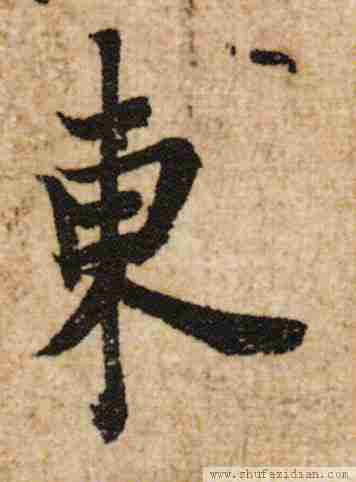 東
www.shufazidian.com